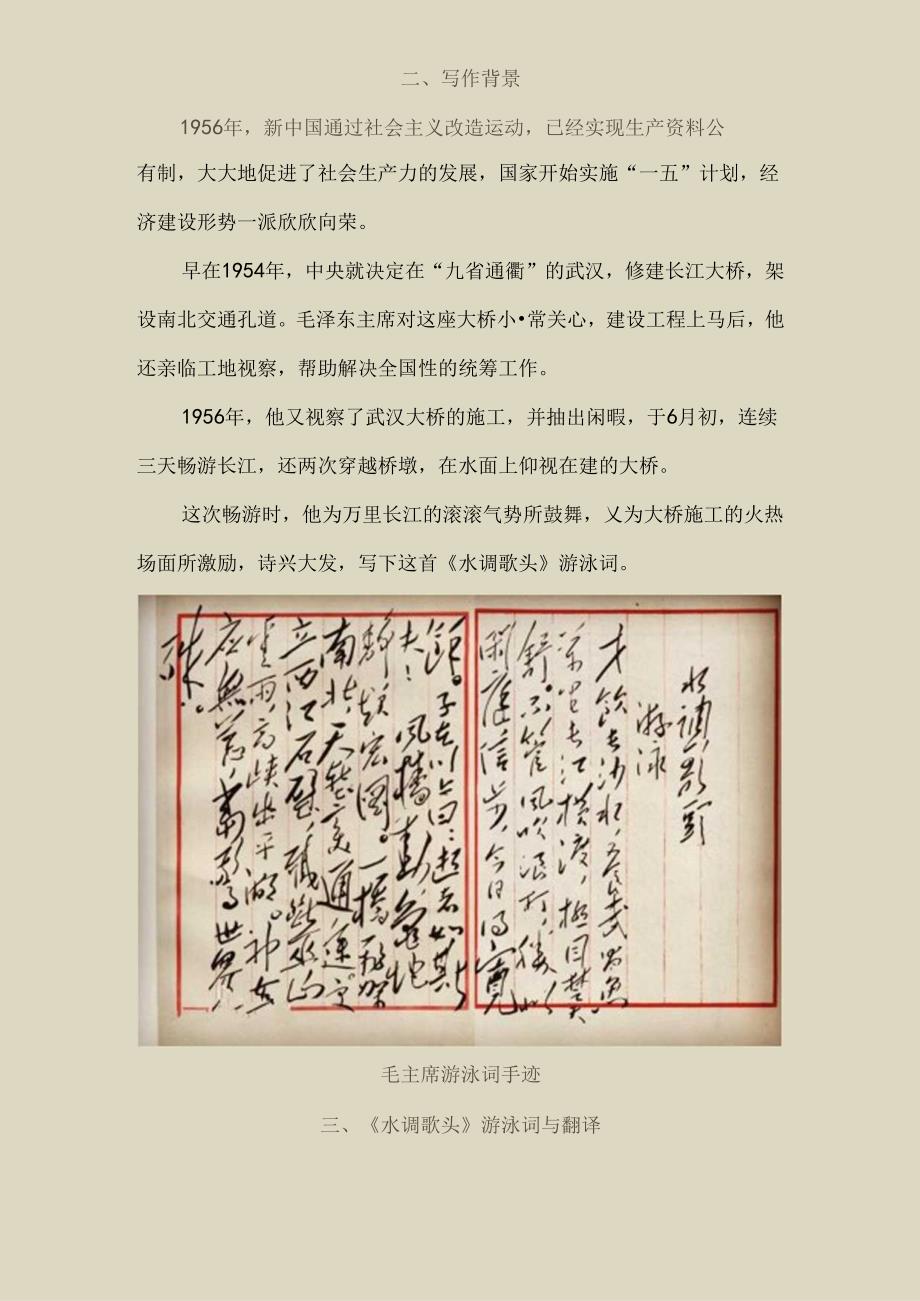 二、写作背景
1956年，新中国通过社会主义改造运动，已经实现生产资料公
有制，大大地促进了社会生产力的发展，国家开始实施“一五”计划，经
济建设形势一派欣欣向荣。
早在1954年，中央就决定在“九省通衢”的武汉，修建长江大桥，架
设南北交通孔道。毛泽东主席对这座大桥小•常关心，建设工程上马后，他
还亲临工地视察，帮助解决全国性的统筹工作。
1956年，他又视察了武汉大桥的施工，并抽出闲暇，于6月初，连续
三天畅游长江，还两次穿越桥墩，在水面上仰视在建的大桥。
这次畅游时，他为万里长江的滚滚气势所鼓舞，乂为大桥施工的火热
场面所激励，诗兴大发，写下这首《水调歌头》游泳词。
水調歌頭
游泳
才飲长沙水，又食武昌魚
万里长江横渡，极目楚天
舒。不管风吹浪打，勝似
閑庭信步，今日得寬
馀。子在川上曰：逝者如斯
夫！风樯動，龟蛇
静，起宏图。一橋飛架
南北，天塹变通途。更
立西江石壁，截断巫山
雲雨，高峡出平湖。神女
应無恙，当惊世界
殊。
毛主席游泳词手迹
三、《水调歌头》游泳词与翻译